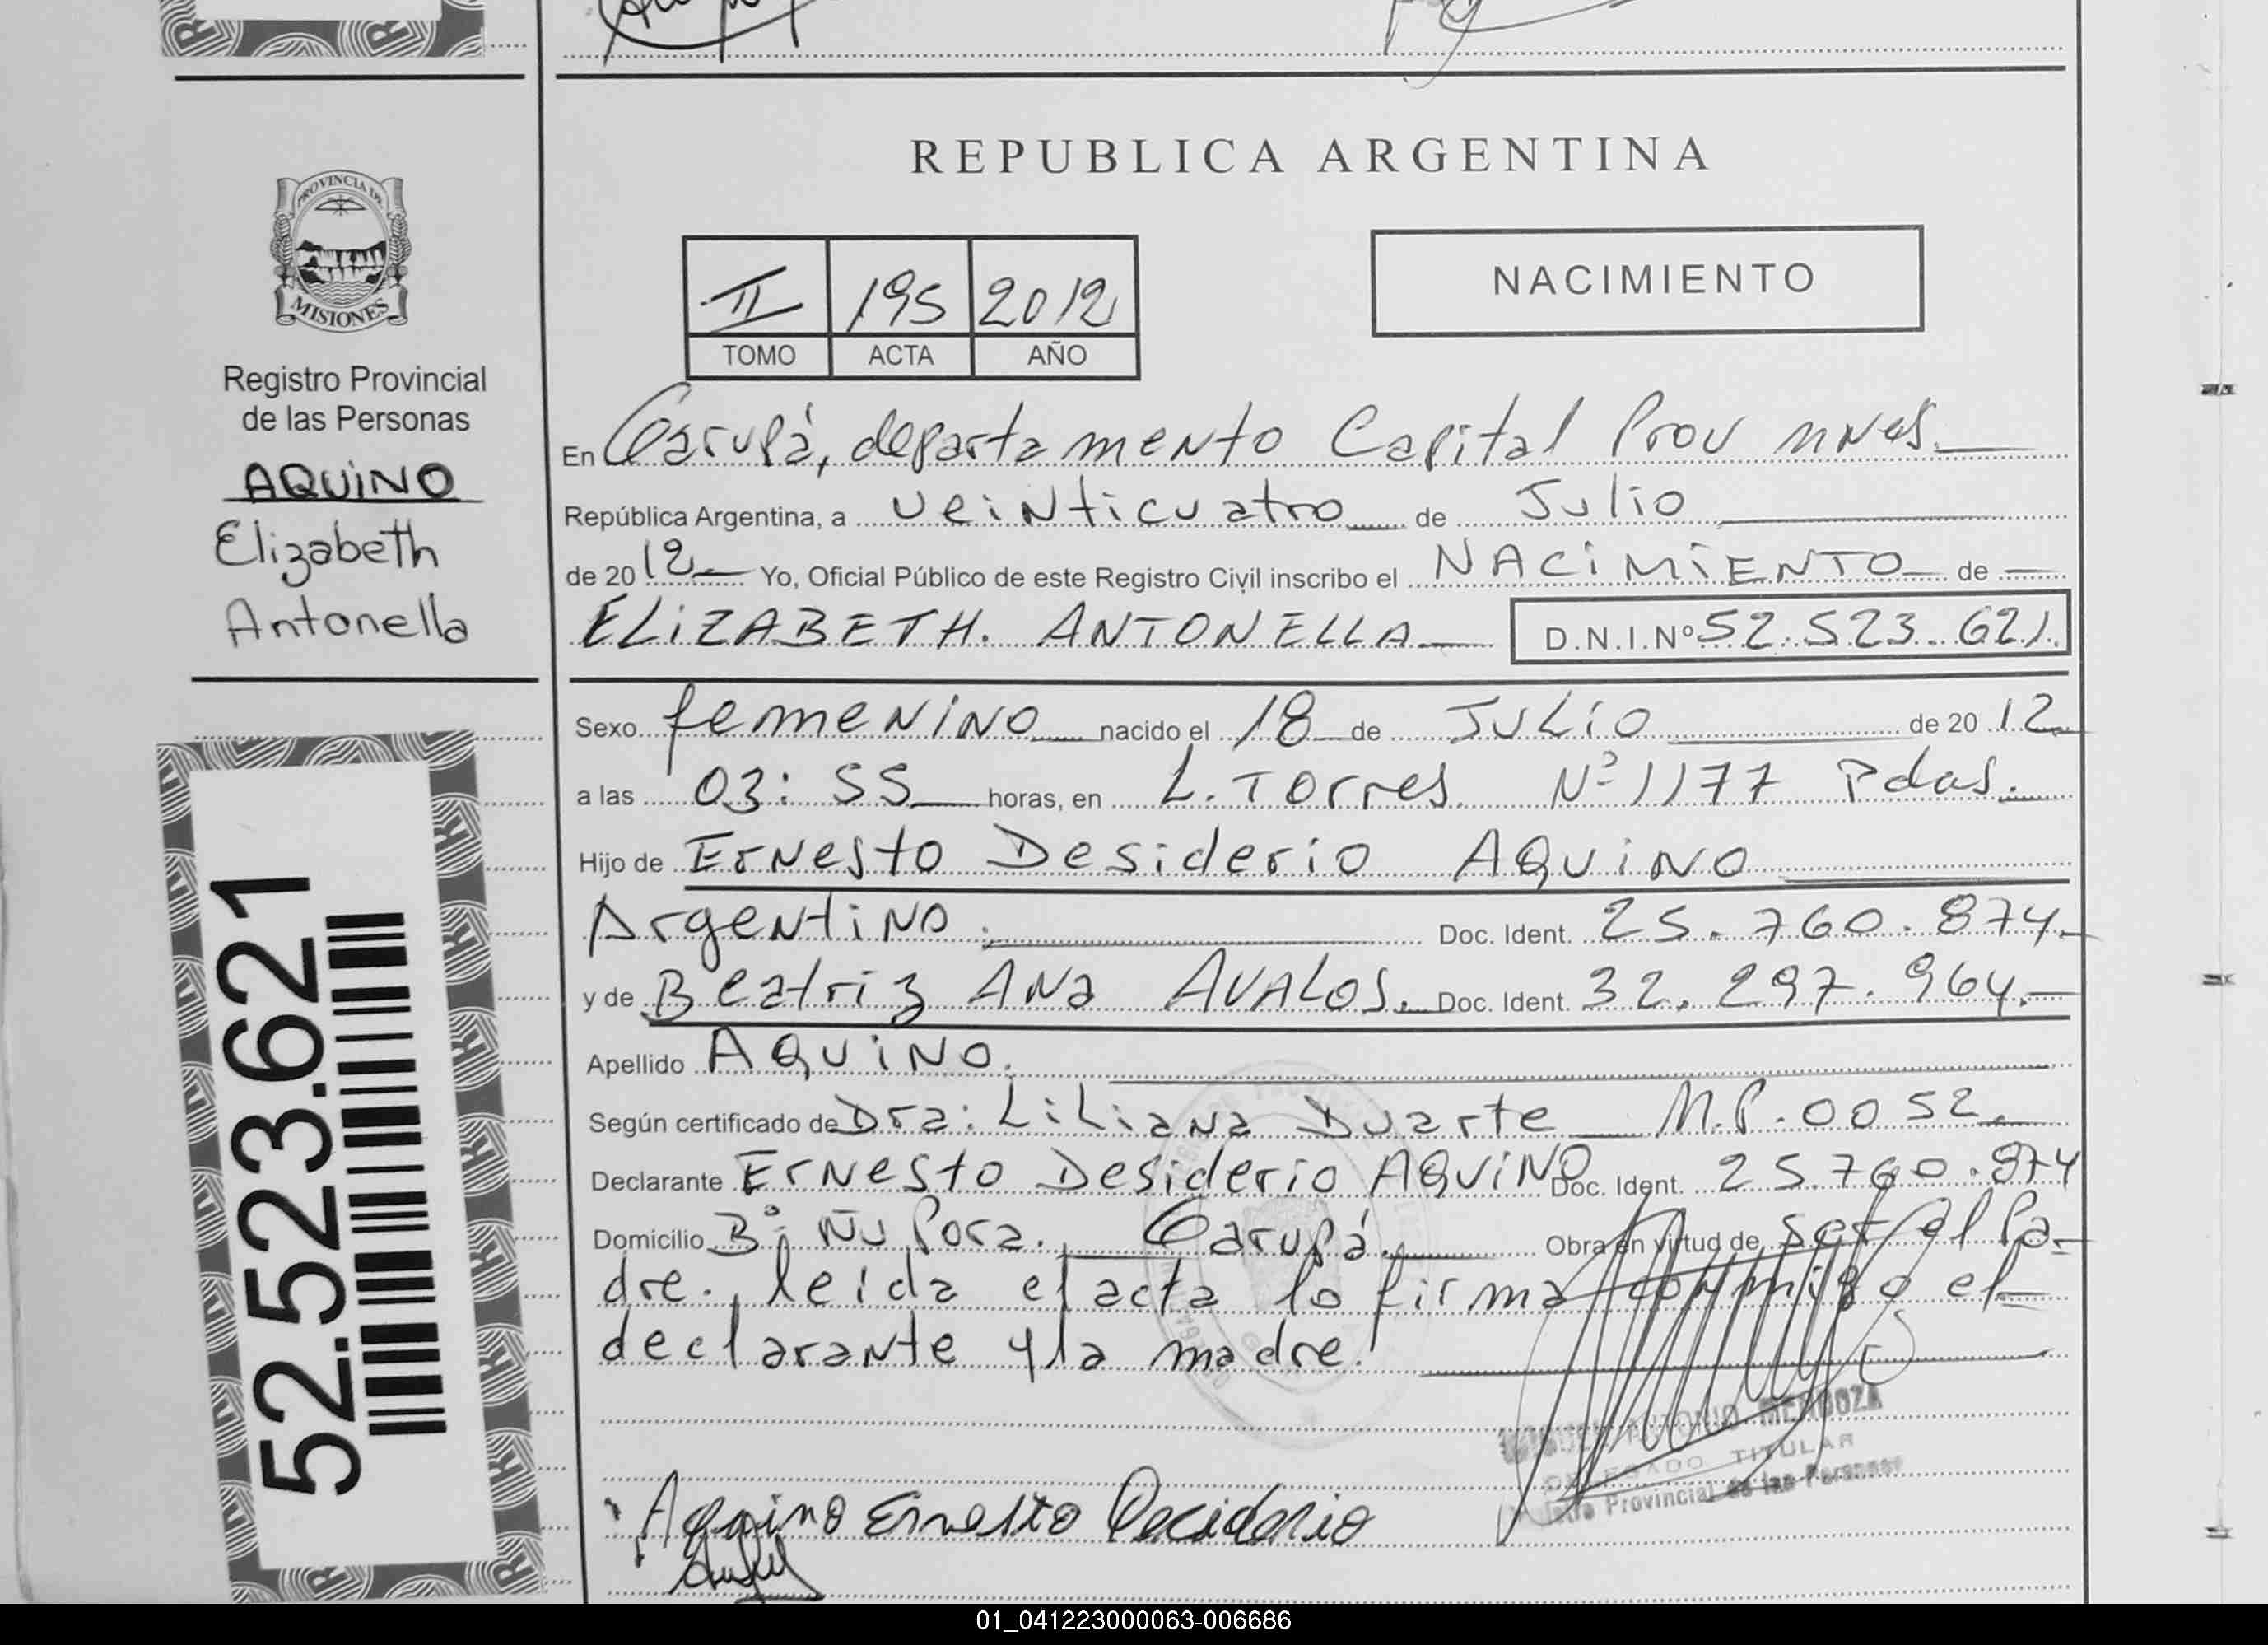 REPUBLICA ARGENTINA
PROVINCIA DE
MISIONES
Registro Provincial
de las Personas
AQUINO
Elizabeth
Antonella
52.523.621
II 195 2012
TOMO ACTA AÑO
NACIMIENTO
En Garupá, departamento Capital Prov mnes.
República Argentina, a veinticuatro de Julio
de 2012 Yo, Oficial Público de este Registro Civil inscribo el NACIMIENTO de
ELIZABETH. ANTONELLA D.N.I.Nº 52.523.621.
Sexo femenino nacido el 18 de JULIO de 2012
a las 03:55 horas, en L. Torres Nº 1177 Pdas.
Hijo de Ernesto Desiderio AQUINO
Argentino. Doc. Ident. 25.760.874.
y de Beatriz Ana AVALOS. Doc. Ident. 32.297.964.
Apellido AQUINO.
Según certificado de Dra: Liliana Duarte M.P.0052.
Declarante Ernesto Desiderio AQUINO Doc. Ident. 25.760.874
Domicilio Bº Ñu Pora. Garupá. Obra en virtud de ser el Pa-
dre. leida el acta la firma conmigo el
declarante y la madre.
ANTONIO MENDOZA
DELEGADO TITULAR
Provincial de las Personas
Aquino Ernesto Decidorio
01_041223000063-006686